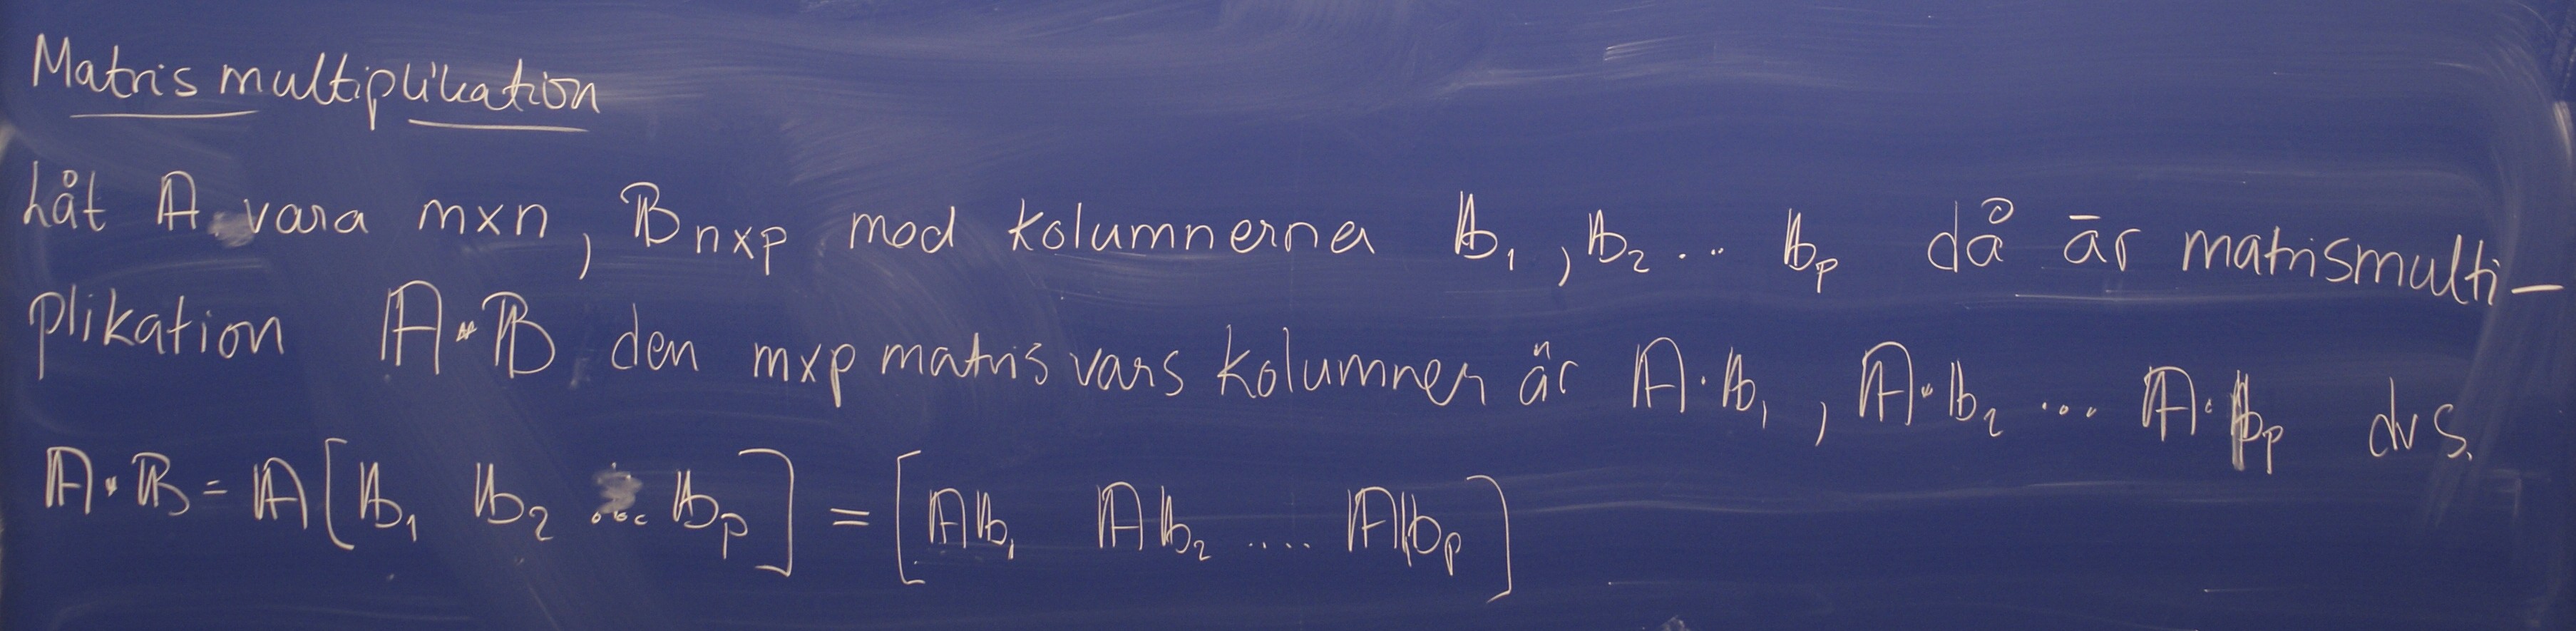 Matris multiplikation
Låt 𝔸 vara m×n, 𝔹 n×p med kolumnerna 𝕓₁, 𝕓₂ ... 𝕓ₚ då är matrismulti-
plikation 𝔸·𝔹 den m×p matris vars kolumner är 𝔸·𝕓₁, 𝔸·𝕓₂ ... 𝔸·𝕓ₚ dvs.
𝔸·𝔹 = 𝔸[𝕓₁ 𝕓₂ ... 𝕓ₚ] = [𝔸𝕓₁ 𝔸𝕓₂ .... 𝔸𝕓ₚ]